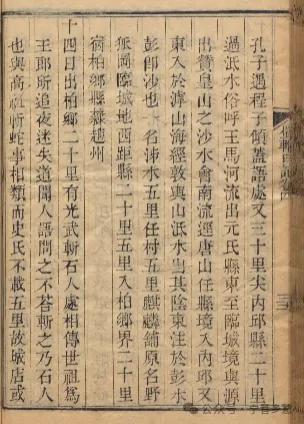 孔子遇程子傾蓋語處又三十里尖內邱縣二十里
過泜水俗呼王馬河流出元氏縣東至臨城境與源
出贊皇山之沙水會南流逕唐山任縣境入內邱又
東入於滹山海經敦與山泜水出其陰東注於彭水
彭卽沙也一名涉水五里任村五里麒麟鋪原名野
狐岡臨城地西距縣二十五里五里入柏鄉界二十里
宿柏鄉縣隸趙州
十四日出柏鄉二十里有光武斬石人處相傳世祖爲
王郎所追夜迷失道聞人語問之不荅斬之乃石人
也與高祖斬蛇事相類而史氏不載五里故城店或
公众号